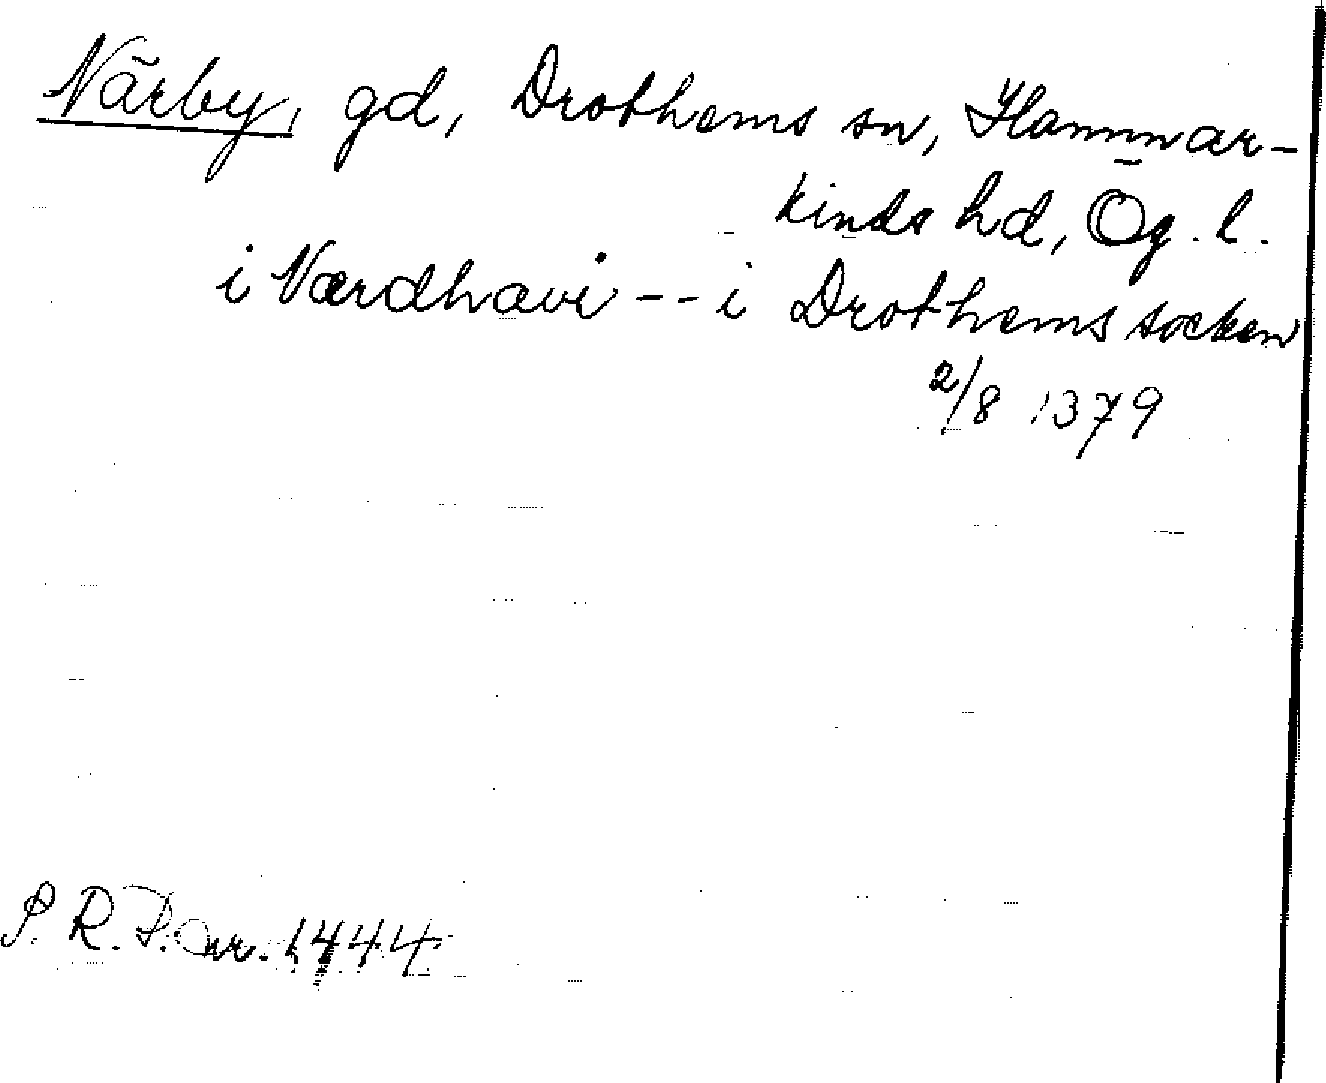 Närby, gd, Drothems sn, Hammar-
kinds hd, Ög. l.
i Nærdhavi -- i Drothems socken
2/8 1379
S. R. P. nr. 1444